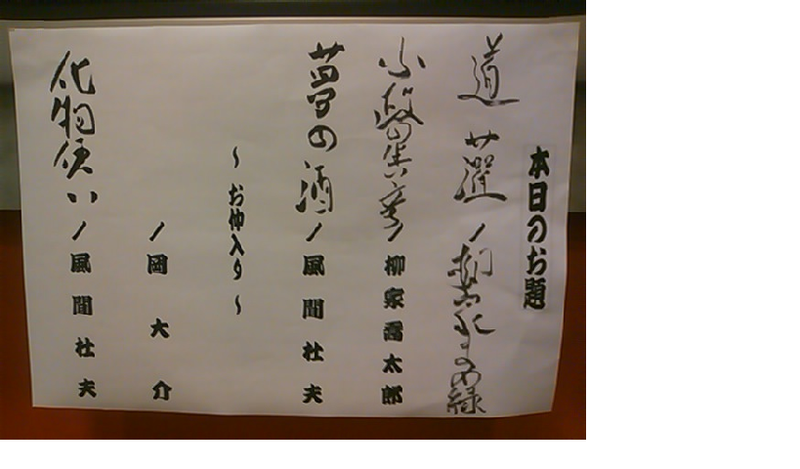 本日のお題
道灌 / 柳家まめ緑
/ 柳家喬太郎
夢の酒 / 風間杜夫
～お仲入り～
/ 岡大介
化物使い / 風間杜夫